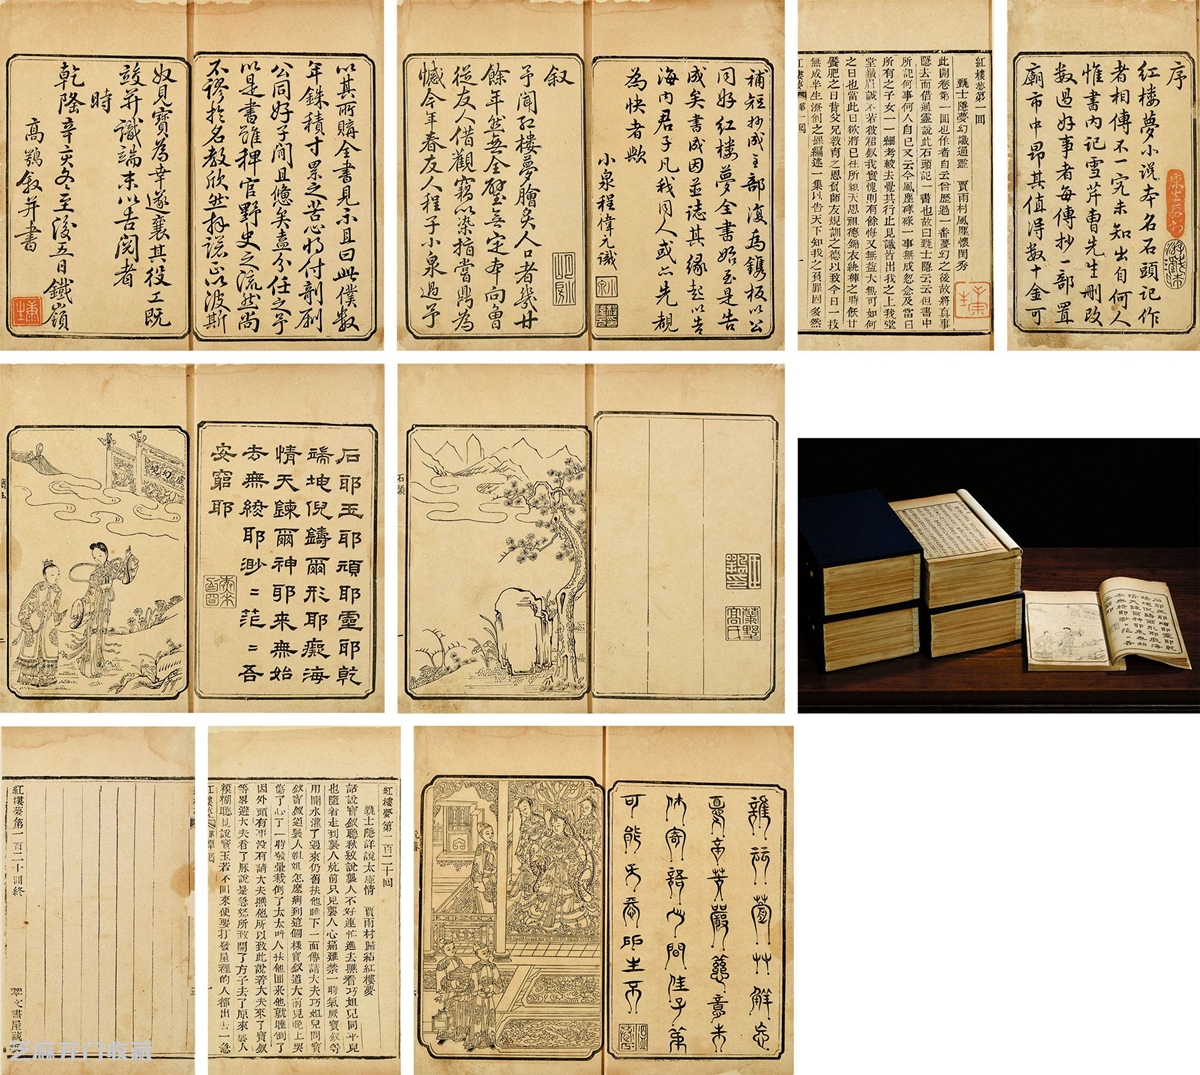 以其所購全書見示且曰此僕數
年銖積寸累之苦心將付剞劂
公同好子閒且憊矣盍分任之予
以是書雖稗官野史之流然尚
不謬於名教欣然拜諾正以波斯
奴見寶為幸遂襄其役工既
竣并識端末以告閱者
時
乾隆辛亥冬至後五日鐵嶺
高鶚敘并書
補短抄成全部復為鐫板以公
同好紅樓夢全書始至是告
成矣書成因並誌其緣起以告
海內君子凡我同人或亦先覩
為快者歟
小泉程偉元識
叙
予聞紅樓夢膾炙人口者幾廿
餘年然無全璧無定本向曾
從友人借觀竊以染指嘗鼎為
憾今年春友人程子小泉過予
紅樓夢第一回
甄士隱夢幻識通靈 賈雨村風塵懷閨秀
此開卷第一回也作者自云曾歷過一番夢幻之後故將真事
隱去而借通靈說此石頭記一書也故曰甄士隱云云但書中
所記何事何人自己又云今風塵碌碌一事無成忽念及當日
所有之女子一一細考較去覺其行止見識皆出我之上我堂
堂鬚眉誠不若彼裙釵我實愧則有餘悔又無益大無可如何
之日也當此日欲將已往所賴天恩祖德錦衣紈褲之時飫甘
饜肥之日背父兄教育之恩負師友規訓之德以致今日一技
無成半生潦倒之罪編述一集以告天下知我之負罪固多然
紅樓夢 第一回
序
紅樓夢小說本名石頭記作
者相傳不一究未知出自何人
惟書內記雪芹曹先生刪改
數過好事者每傳抄一部置
廟市中昂其值得數十金可
石耶玉耶頑耶靈耶乾
端坤倪鑄爾形耶癡海
情天鍊爾神耶來無始
去無終耶渺〻茫〻吾
安窮耶
石頭
紅樓夢第一百二十回終
萃文書屋藏板
紅樓夢第一百二十回
甄士隱詳說太虛情 賈雨村歸結紅樓夢
話說寶釵聽秋紋說襲人不好連忙進去瞧看巧姐兒同平兒
也隨著走到襲人炕前只見襲人心痛難禁一時氣厥寶釵等
用開水灌了過來仍舊扶他睡下一面傳請大夫巧姐兒問寶
釵道襲人姐姐怎麼病到這個樣寶釵道大前兒晚上哭
傷了心了一時發暈栽倒了太太叫人扶他回來他就睡倒了
因外頭有事沒有請大夫瞧他所以致此說著大夫來了寶釵
等略避大夫看了脈說是急怒所致開了方子去了原來襲人
模糊聽見說寶玉若不回來便要打發屋裡的人都出去一急
誰云萱艸解忘
意未
休寄語人間佳子弟
可能無忝所生不
芝麻开门收藏